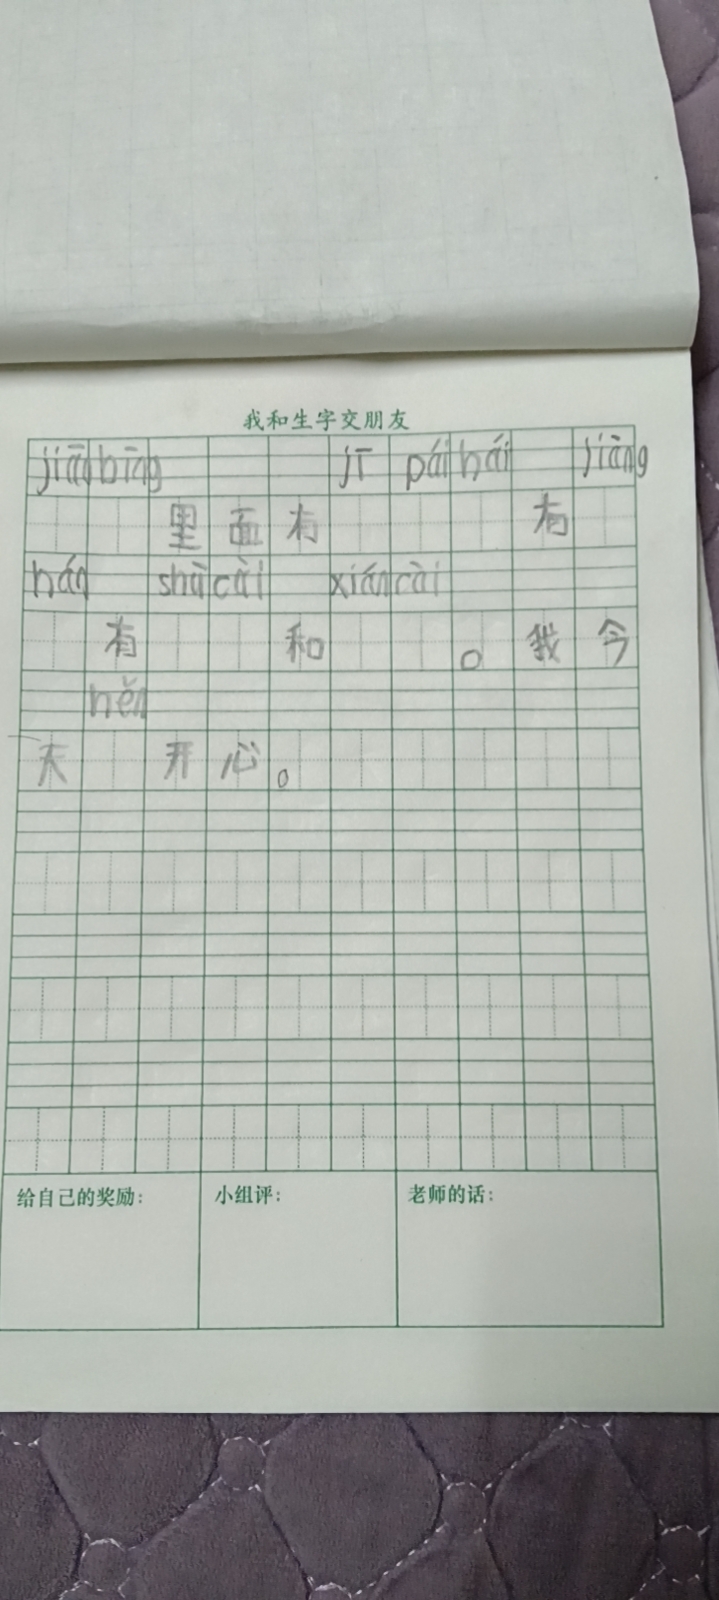 我和生字交朋友
jiān bīng jī pái hái jiāng
里面有 有
hán shù cài xián cài
有 和 。我今
hěn
天 开心。
给自己的奖励： 小组评： 老师的话：